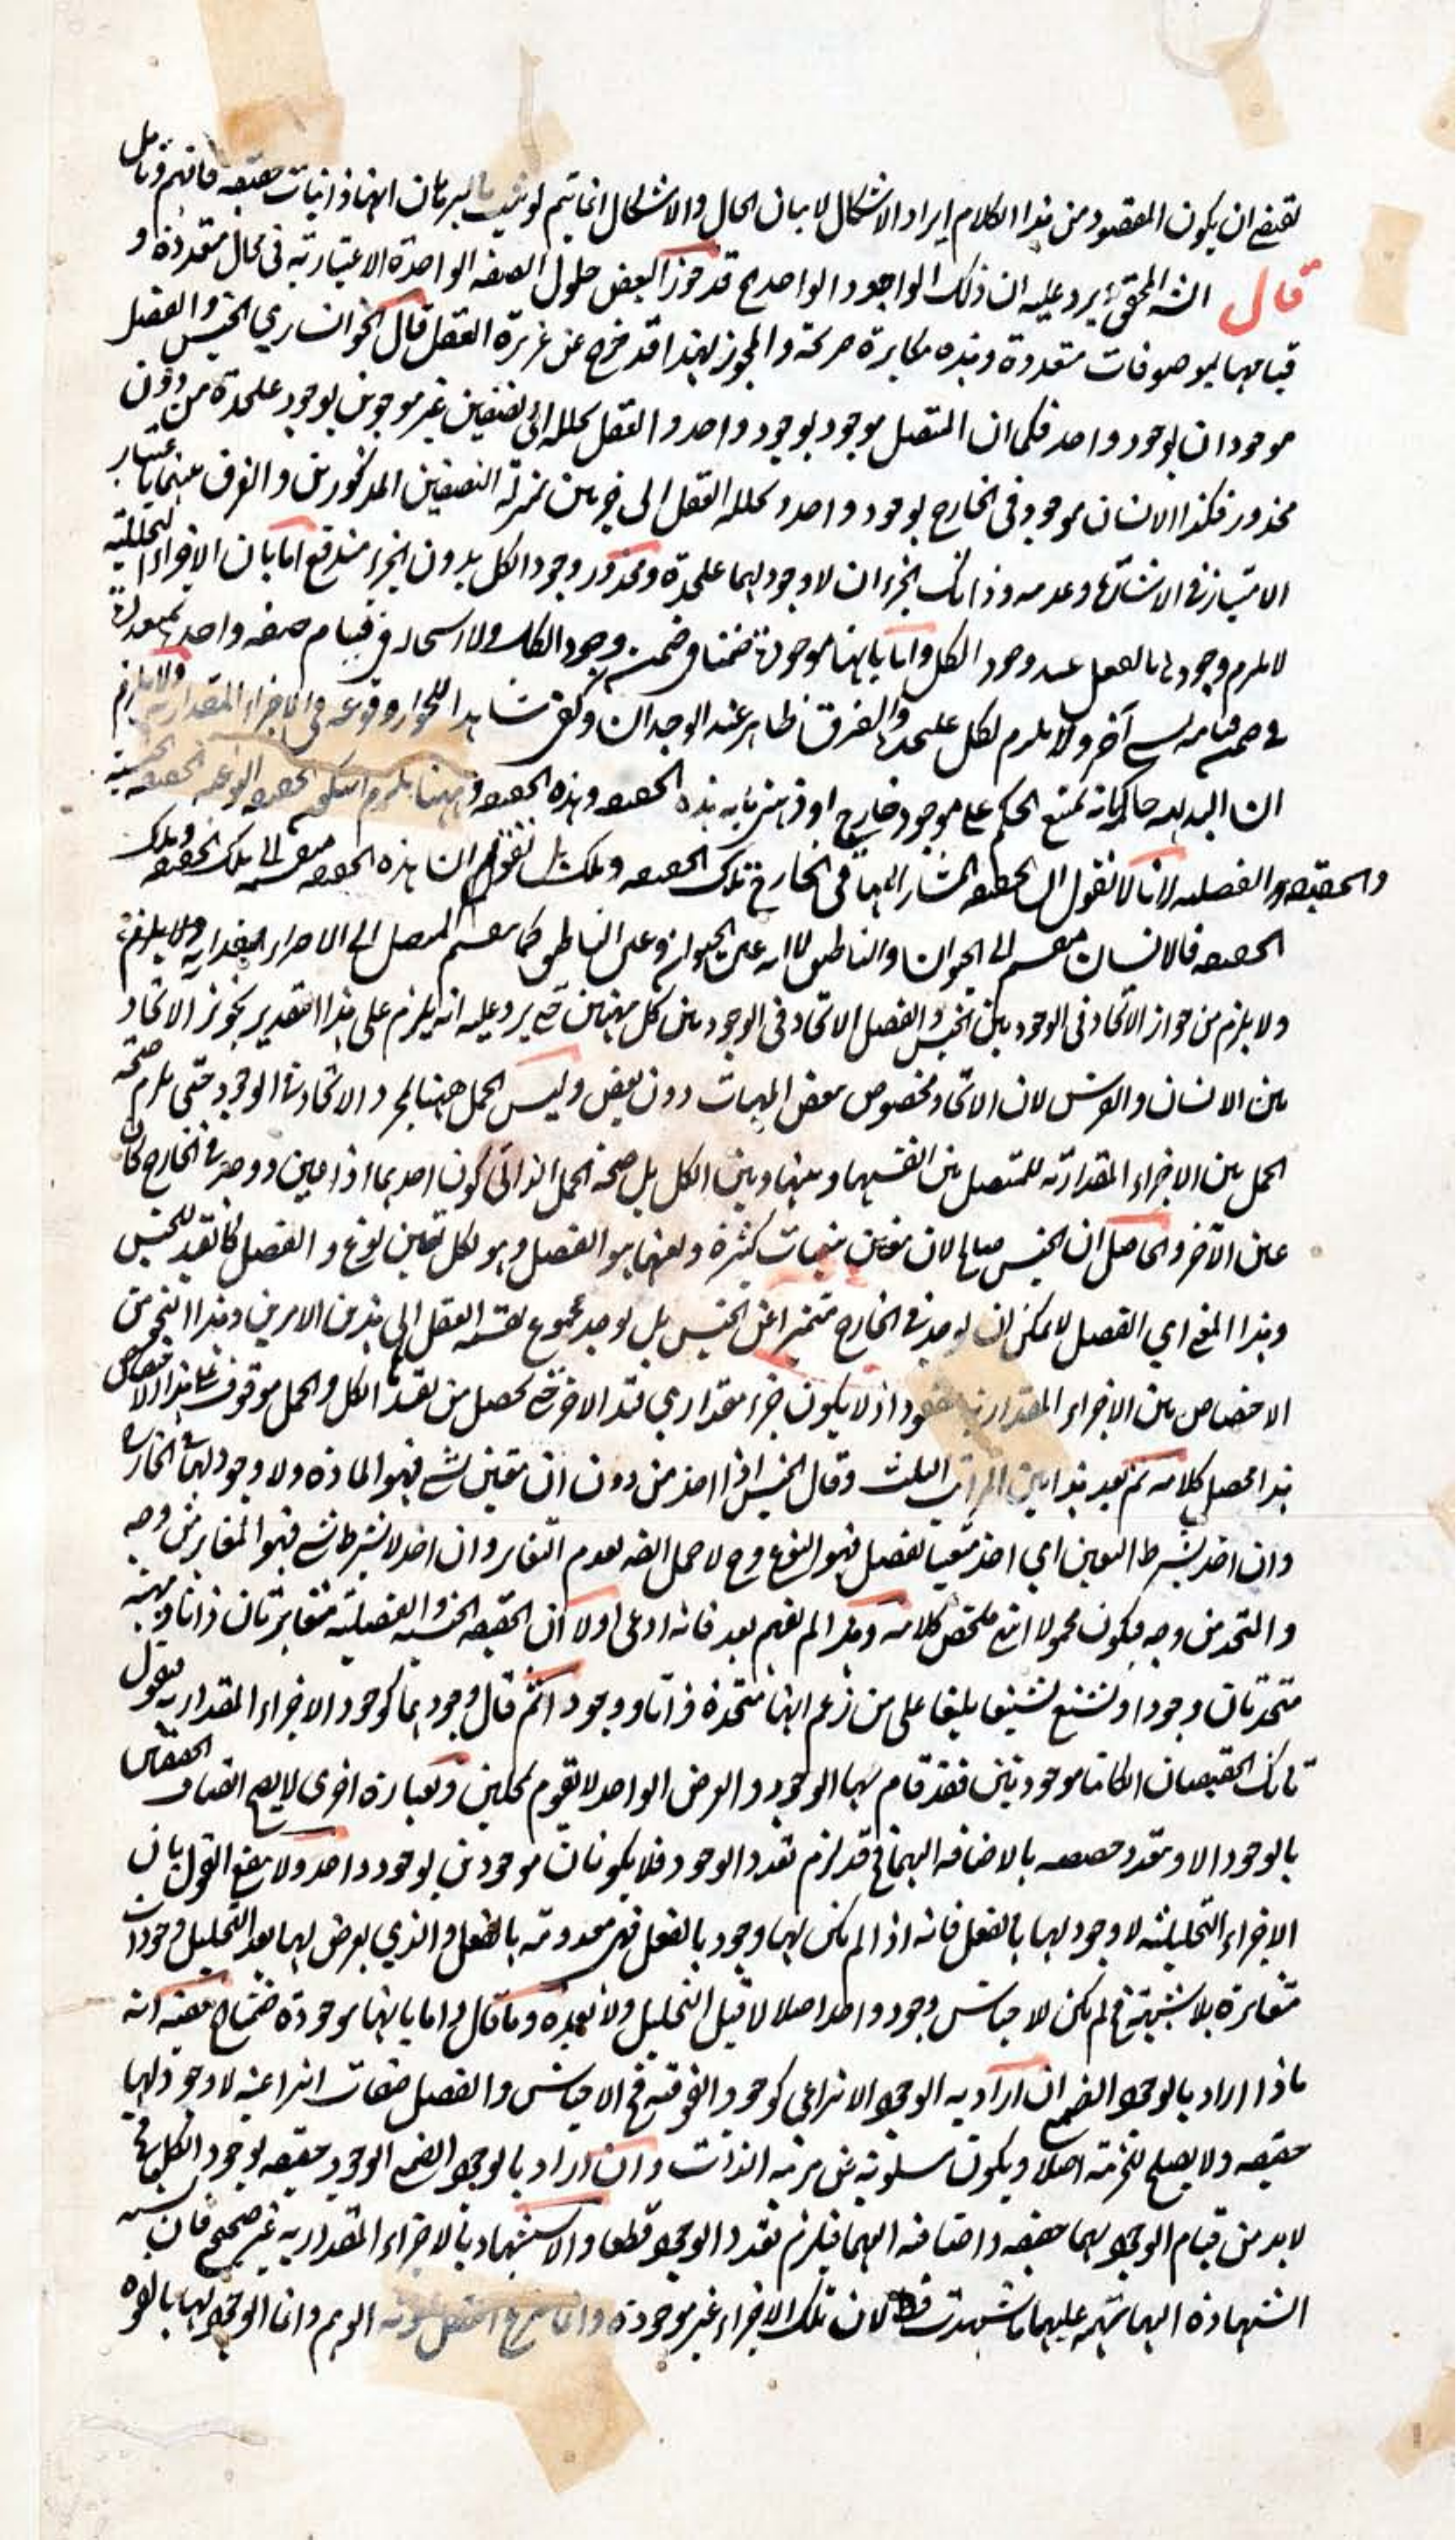 يقتضي ان يكون المقصود من هذا الكلام ايراد الاشكال لا بيان الحال والاشكال انما يتم لو ثبت بالبرهان انها ذاتيات حقيقه فافهم وتامل
قال الشـ المحقق يرد عليه ان ذلك الوجود الواحد الخ قد جوز البعض حلول الصفه الواحدة الاعتباريه في محال متعددة و
قيامها بموصوفات متعددة وهذه مكابرة صريحة والمجوز لهذا قد خرج عن غريزة العقل قال الخوانساري الجنس والفصل
موجودان بوجود واحد فكما ان المتصل موجود بوجود واحد والعقل يحلله الى نصفين غير موجودين بوجود علىحدة من دون
محذور فكذا الانسان موجود في الخارج بوجود واحد ويحلله العقل الى جزئين بمنزلة النصفين المذكورين والفرق بينهما باعتبار
الامتياز في الاشارة وعدمه وذانك الجزءان لا وجود لهما علىحدة ومحذور وجود الكل بدون الجزء مندفع اما بان الاجزاء التحليلية
لا يلزم وجودها بالفعل عند وجود الكل واما بانها موجودة ضمنا في ضمن وجود الكل ولا استحالة في قيام صفه واحد بمتعددة
في ضمن قيامه بشيء آخر ولا يلزم لكل علىحدة والفرق ظاهر عند الوجدان وكفى شاهدا للجواز وقوعه في الاجزاء المقدارية ولا يلزم
ان البديهه حاكمة بانه يمتنع الحكم على موجود خارجي او ذهني بانه هذه الحقيقه وهذه الحقيقه وههنا يلزم الحقيقه النوعيه الحقيقه الجنسيه
والحقيقه الفصليه لانا لا نقول ان الحقيقه المشار اليها في الخارج تلك الحقيقه وتلك بل نقول ان هذه الحقيقه منقسمه الى تلك الحقيقه وتلك
الحقيقه فالانسان منقسم الى الحيوان والناطق لا انه عين الحيوان وعين الناطق كما ينقسم المتصل الى الاجزاء المقداريه ولا يلزم
ولا يلزم من جواز الاتحاد في الوجود بين الجنس والفصل الاتحاد في الوجود بين كل مهيتين حتى يرد عليه انه يلزم على هذا التقدير تجويز الاتحاد
بين الانسان والفرس لان الاتحاد مخصوص ببعض المهيات دون بعض وليس الحمل ههنا لمجرد الاتحاد في الوجود حتى يلزم صحة
الحمل بين الاجزاء المقدارية للمتصل بين انفسها وبينها وبين الكل بل صحة الحمل الذاتي كون احدهما اذا عين ووجد في الخارج كان
عين الآخر والحاصل ان الجنس صالح لان معين تعينات كثيرة وتعينها هو الفصل وهو لكل تعين نوع والفصل كانقيد للجنس
وهذا المعنى اي الفصل لا يمكن ان يوجد في الخارج متميزا عن الجنس بل يوجد مجموع يقسمه العقل الى هذين الامرين وهذا النحو من
الاختصاص بين الاجزاء المقدارية مفقود اذ لا يكون جزء مقداري قيد الاخر حتى يحصل من تقيده الكل والحمل موقوف على هذا الاختصاص
هذا محصل كلامه ثم بعد هذا بين المراتب الثلث وقال الجنس اذا اخذ من دون ان معين بشيء فهو المادة ولا وجود لها في الخارج
وان اخذ بشرط التعين اي اخذ متعينا بفصل فهو النوع وح لا حمل ايضا لعدم التغاير وان اخذ لا بشرط شيء فهو المغاير من وجه
والمتحد من وجه فيكون محمولا انتهى ملخص كلامه وهذا لم يفهم بعد فانه ادعى اولا ان الحقيقه الجنسيه والفصليه متغايرتان ذاتا ومهية
متحدتان وجودا وتشنع تشنيعا بليغا على من زعم انها متحدة ذاتا ووجودا ثم قال وجودهما كوجود الاجزاء المقداريه فنقول
تانك الحقيقتان ان كانتا موجودتين فقد قام بهما الوجود والعرض الواحد لا يقوم بمحلين وبعبارة اخرى لا يصح اتصاف الحقيقتين
بالوجود الا وتعدد حصصه بالاضافه اليهما ح قد لزم تعدد الوجود فلا يكونان موجودين بوجود واحد ولا ينفع القول بان
الاجزاء التحليليه لا وجود لها بالفعل فانه اذا لم يكن لها وجود بالفعل فهى معدومة بالفعل والذي يعرض لها بعد التحليل وجودات
متغايرة بلا شبهة فلم يكن للاجناس وجود واحد اصلا لا قبل التحليل ولا بعده وما قال واما بانها موجودة ضمنا ففيه انه
ماذا اراد بالوجود الضمني ان اراد به الوجود الانتزاعي كوجود الفوقية فح الاجناس والفصل صفات انتزاعيه لا وجود لها
حقيقه ولا يصلح للجزئية اصلا ويكون مسلوبة عن مرتبة الذات وان اراد بالوجود الضمني الوجود حقيقه بوجود الكل فح
لابد من قيام الوجود بهما حقيقه واضافته اليهما فيلزم تعدد الوجود قطعا والاستشهاد بالاجزاء المقداريه غير صحيح فان نسبة
الشهادة اليها تهمة عليها ما شهدت قط لان تلك الاجزاء غير موجودة وانما العقل الوهم وانما الوجود لها بالقوة